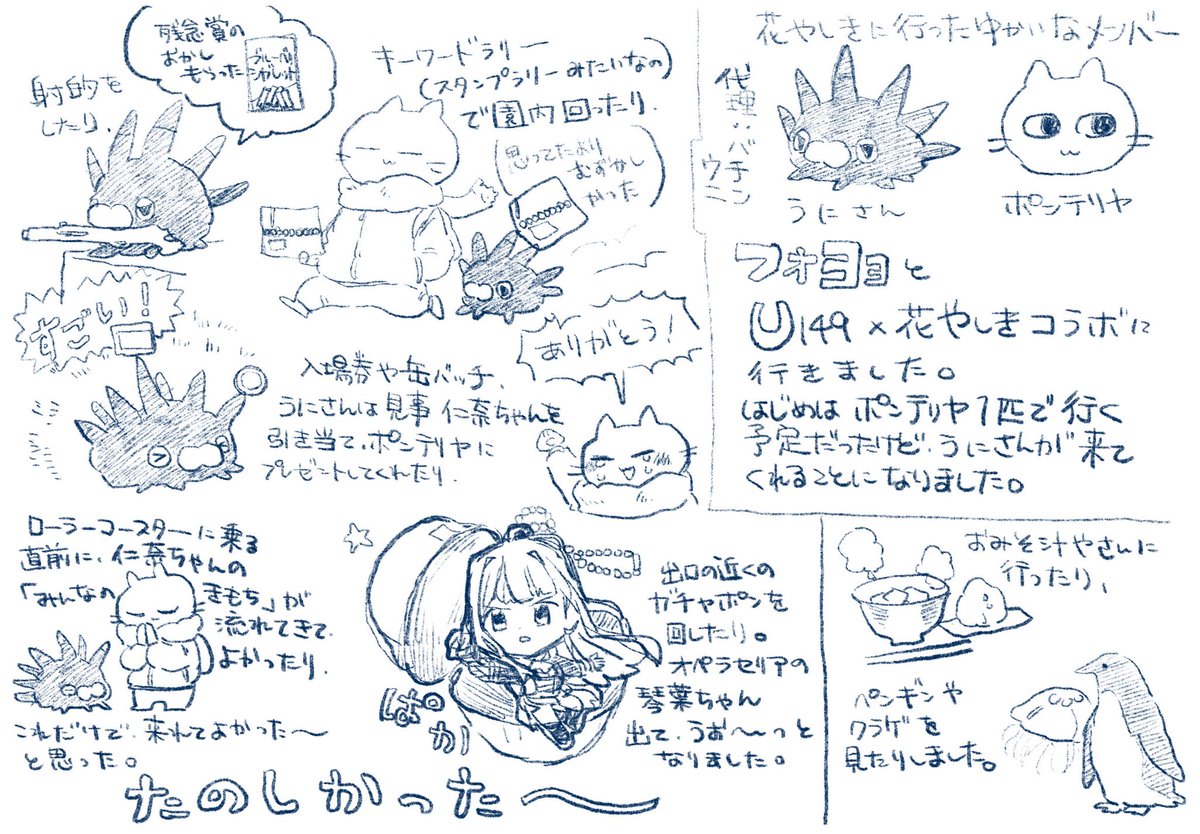 花やしきに行ったゆかいなメンバー
代理:バチンウニ
うにさん
ポンテリヤ
フォヨョと
U149×花やしきコラボに
行きました。
はじめはポンテリヤ1匹で行く
予定だったけど、うにさんが来て
くれることになりました。
キーワードラリー
(スタンプラリーみたいなの)
で園内回ったり、
思ってたより
むずかし
かった
射的を
したり、
残念賞の
おかし
もらった
すごい!!
入場券や缶バッチ、
うにさんは見事仁奈ちゃんを
引き当て、ポンテリヤに
プレゼントしてくれたり、
ありがとう!
ローラーコースターに乗る
直前に、仁奈ちゃんの
「みんなのきもち」が
流れてきて
よかったり、
これだけで、来れてよかった〜
と思った。
出口の近くの
ガチャポンを
回したり。
オペラセリアの
琴葉ちゃん
出て、うぉ〜〜っと
なりました。
ぱかっ
おみそ汁やさんに
行ったり、
ペンギンや
クラゲを
見たりしました。
たのしかった〜